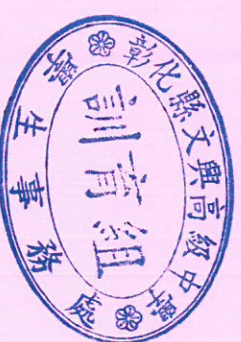 彰化縣文興高級中學
訓育組
學生事務處